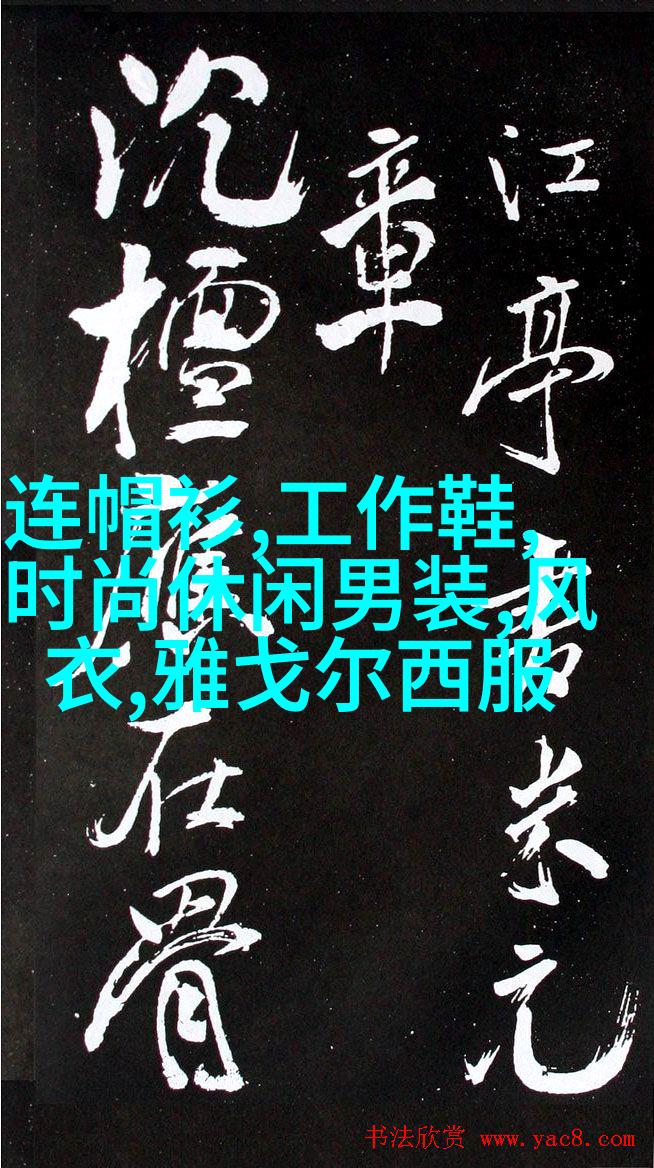 江亭書米元
章
沉檀在骨
连帽衫,工作鞋,
时尚休闲男装,风
衣,雅戈尔西服
书法欣赏 www.yac8.com